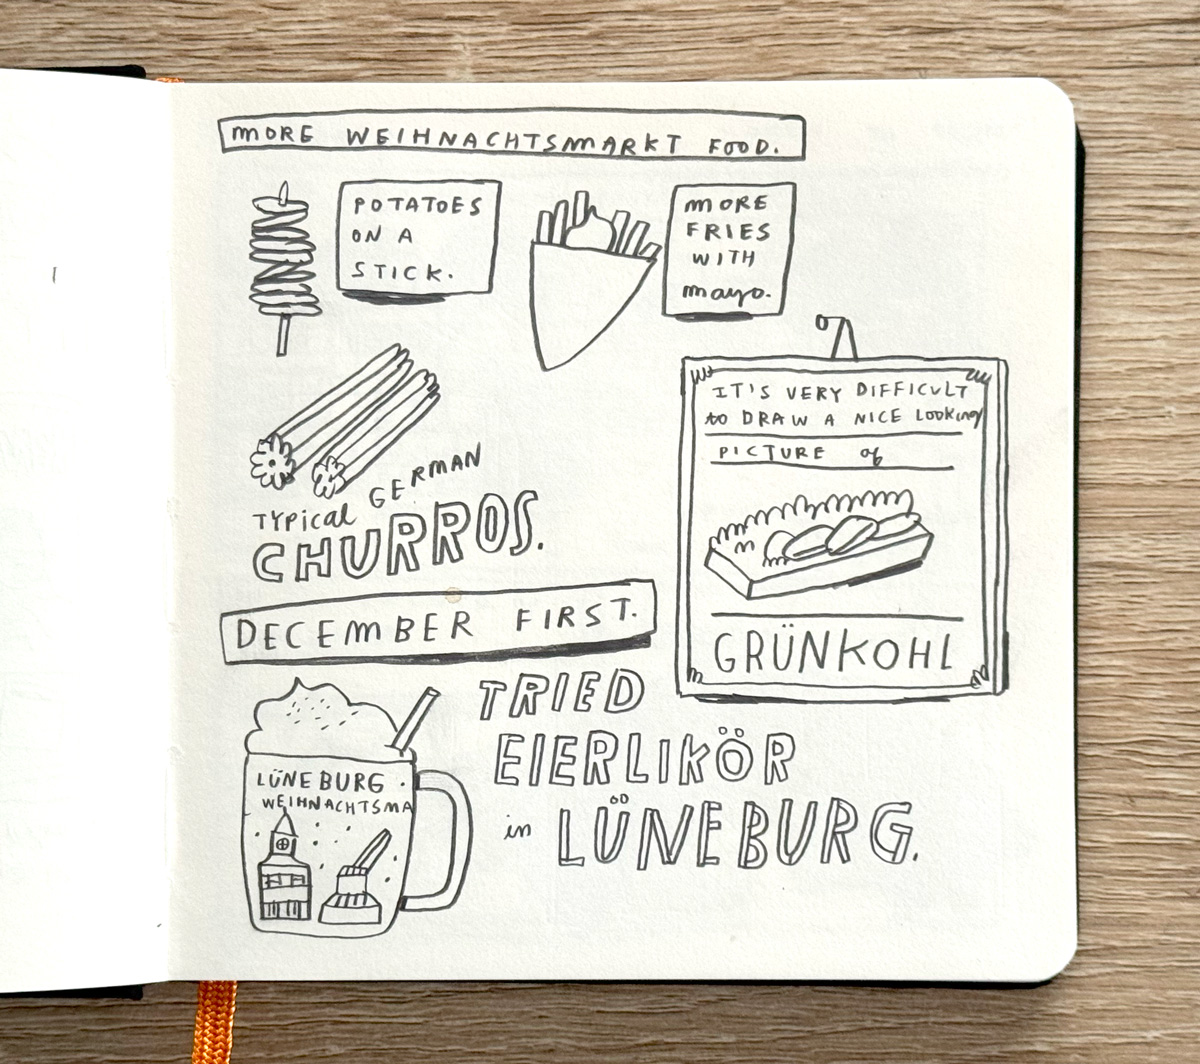 MORE WEIHNACHTSMARKT FOOD.
POTATOES
ON A
STICK.
MORE
FRIES
WITH
mayo.
TYPICAL GERMAN
CHURROS.
IT'S VERY DIFFICULT
to DRAW A NICE LOOKING
PICTURE of
GRÜNKOHL
DECEMBER FIRST.
TRIED
EIERLIKÖR
in LÜNEBURG.
LÜNEBURG .
WEIHNACHTSMA